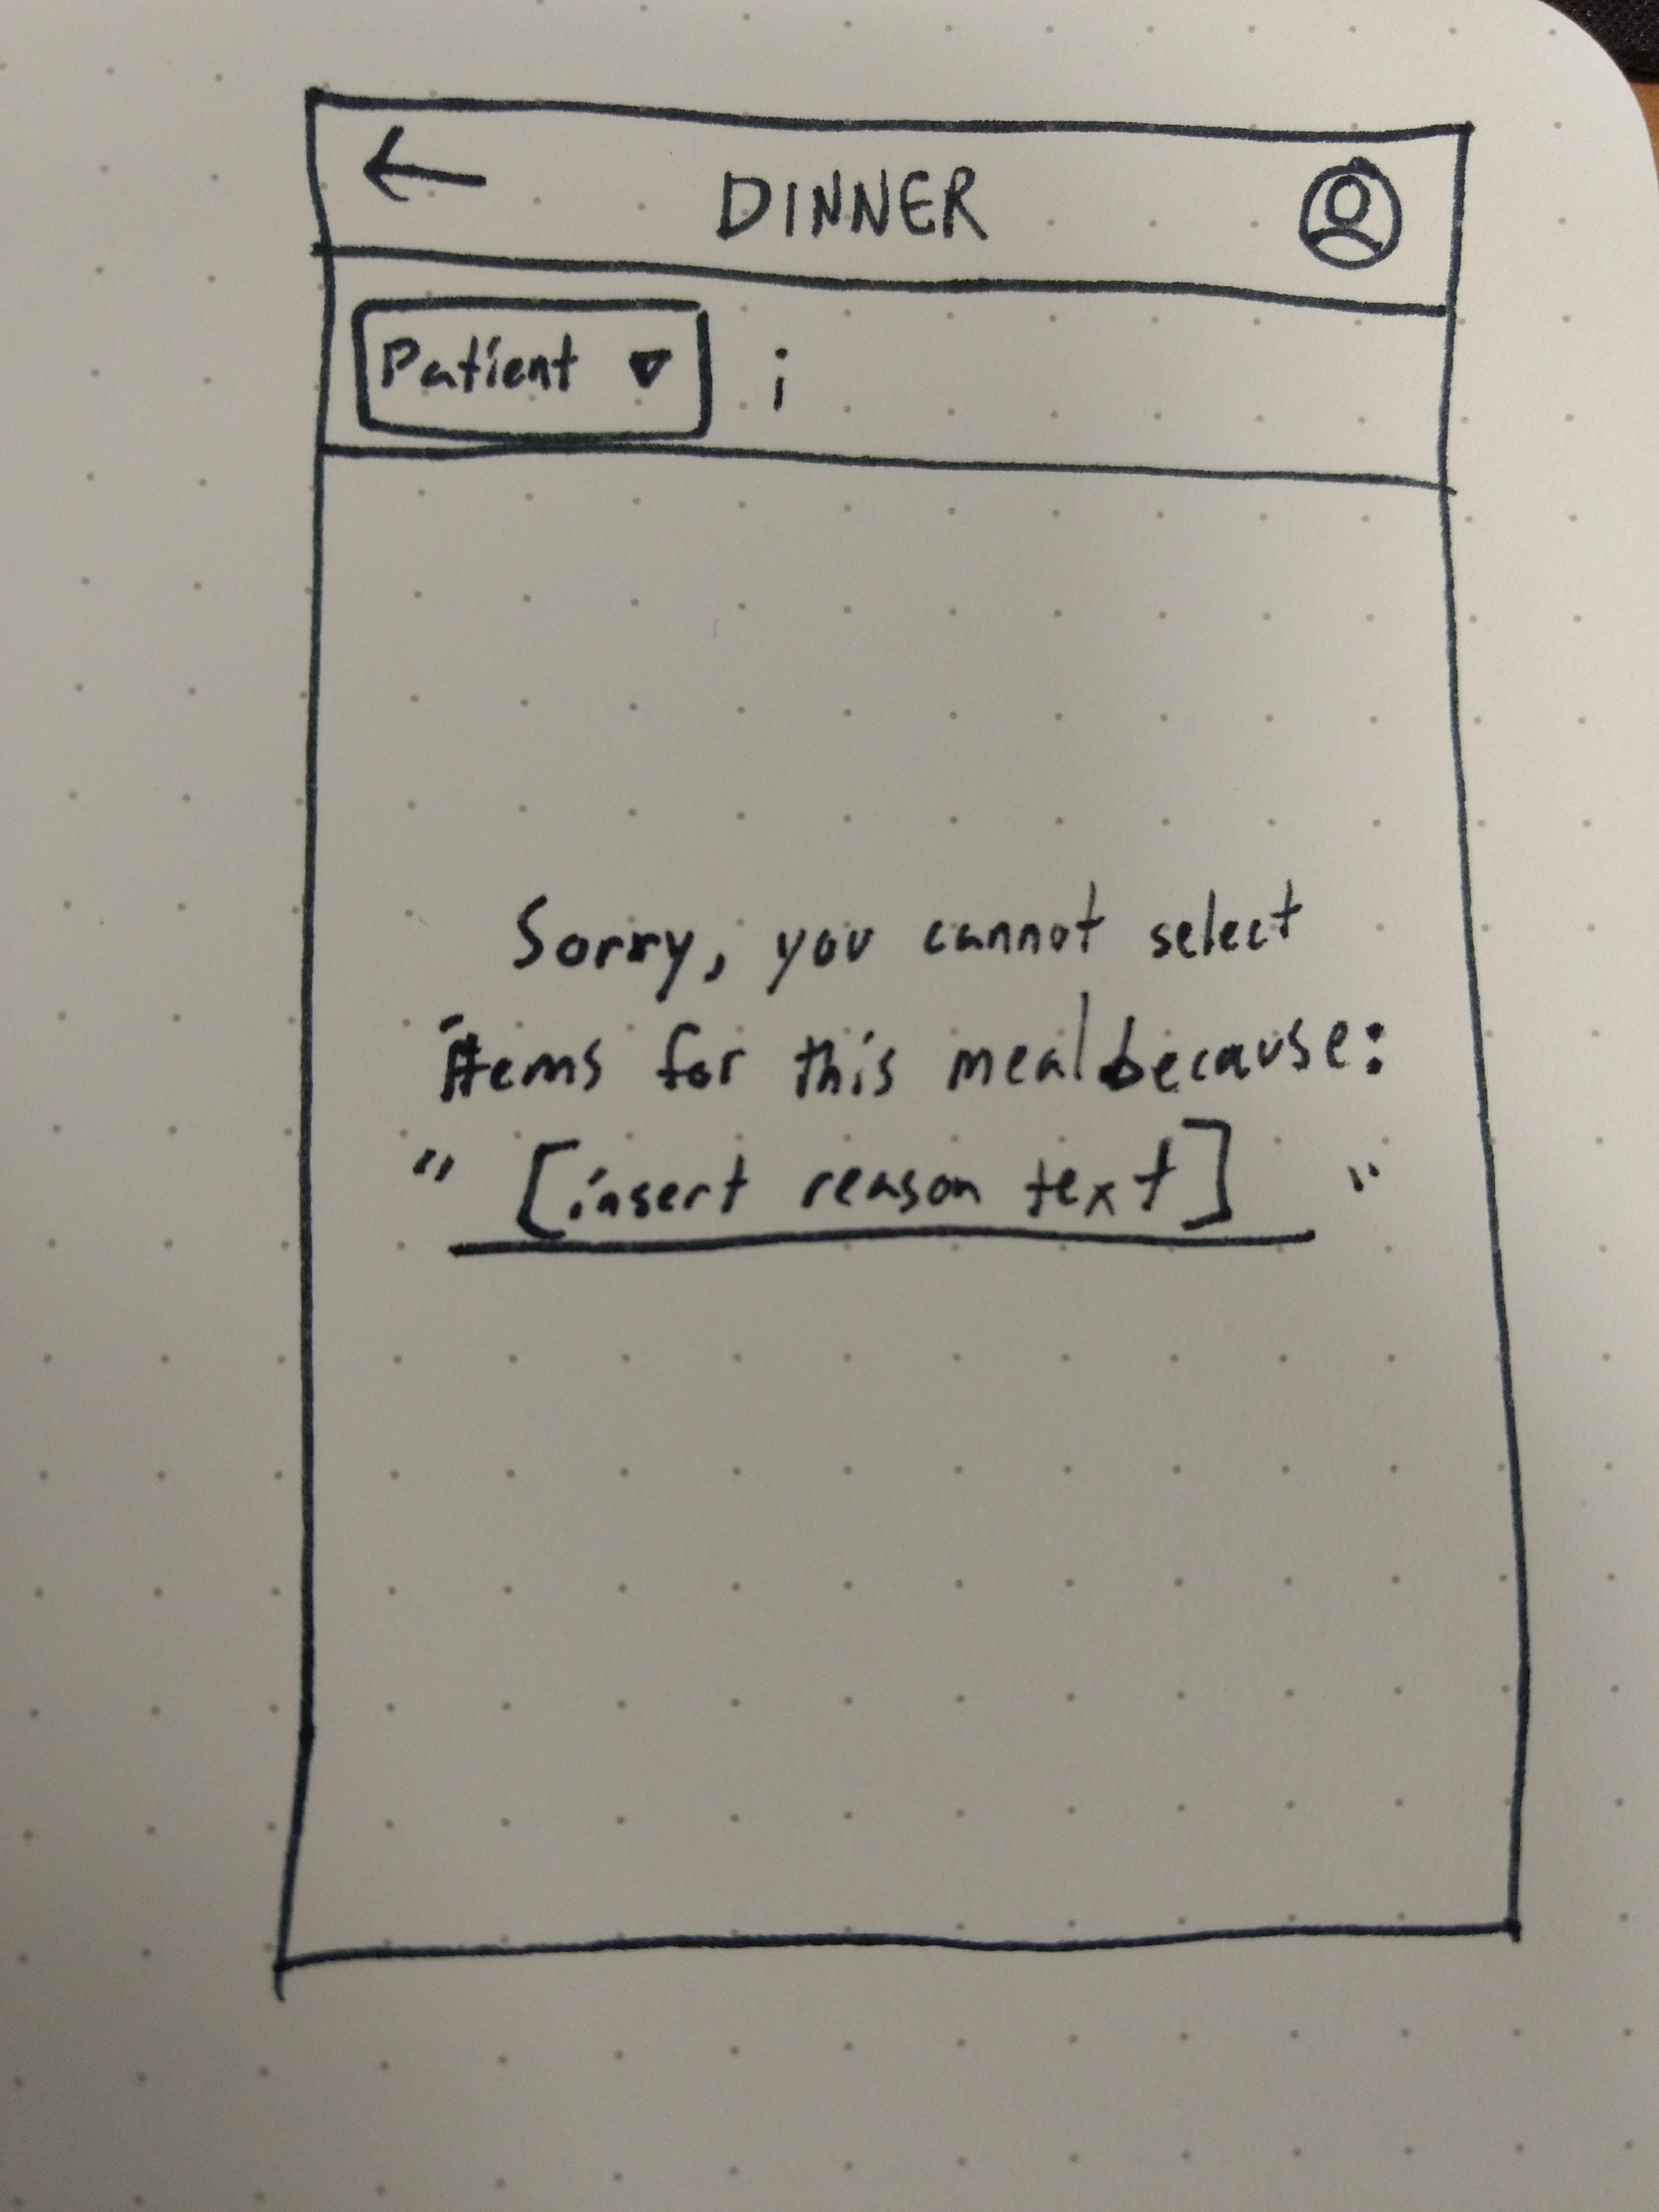 DINNER
Patient i
Sorry, you cannot select
items for this meal because:
" [insert reason text] "